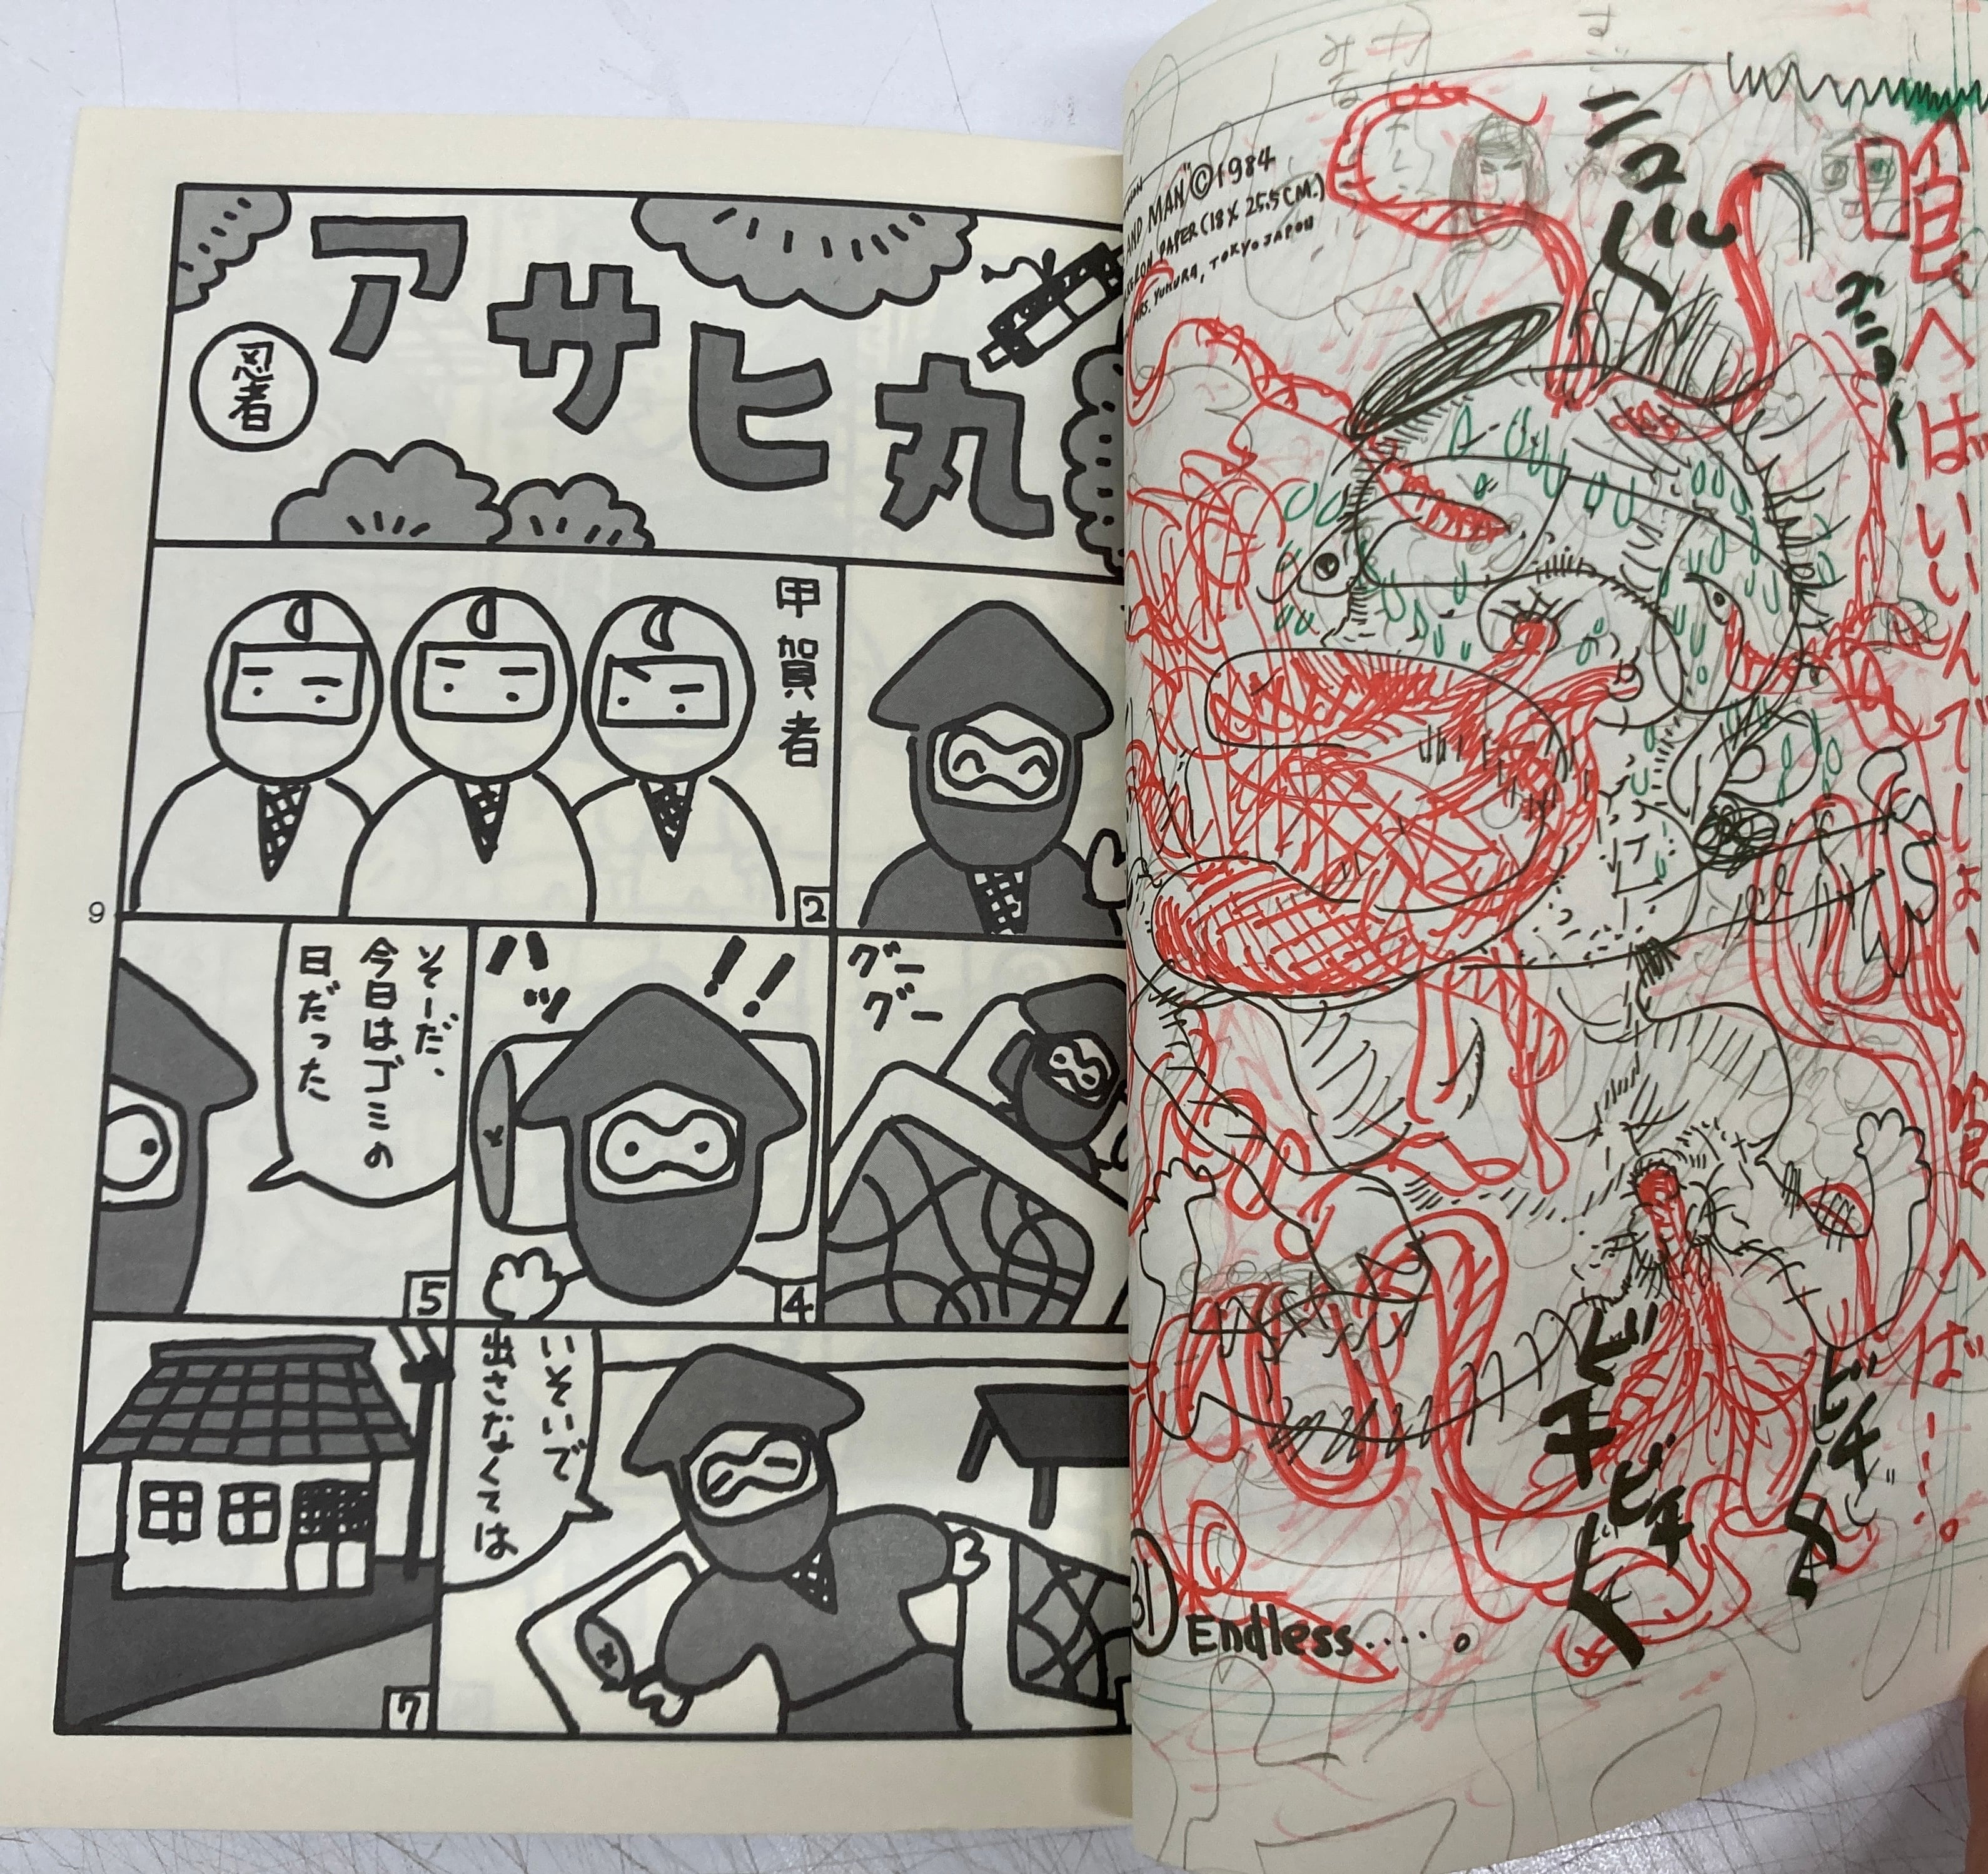 忍者
アサヒ丸
甲賀者
2
グーグー
ハッ
!!
4
そーだ、
今日はゴミの
日だった
5
いそいで
出さなくては
7
9
AND MAN" ©1984
PAPER (18 X 25.5 CM.)
MRS. YUMURA, TOKYO JAPON
ニュル〜
へばいいんでしょ、
へば……。
ビチビチ〜
ビチ〜
31
Endless.....。